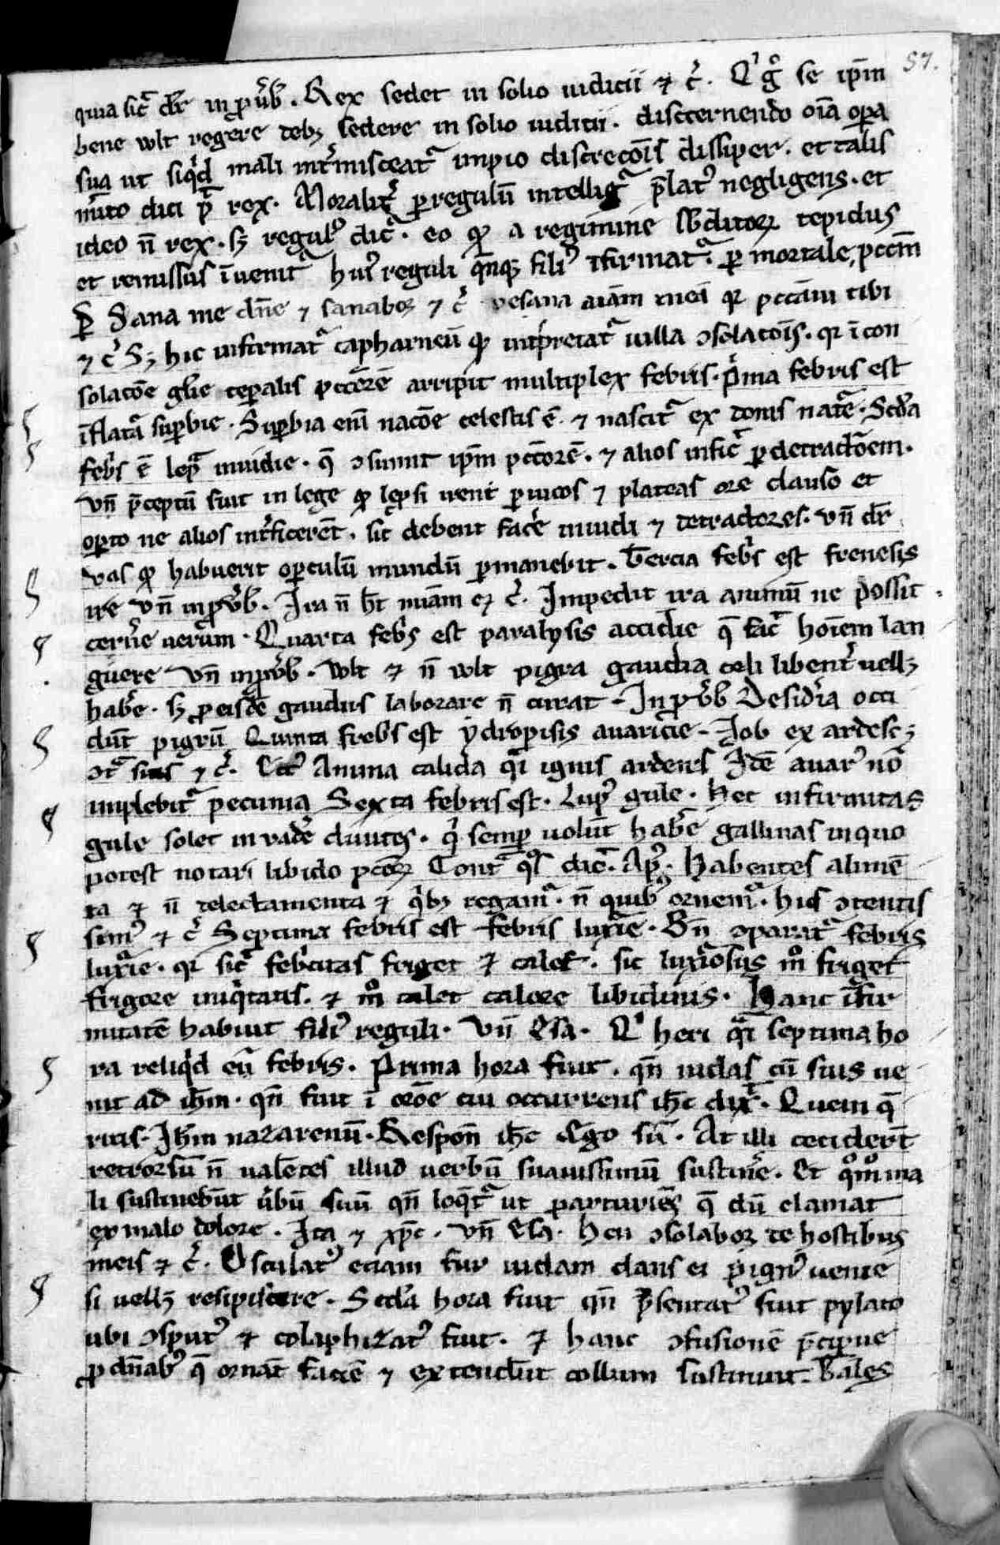 57.
quia sic̄ dr̄ in ꝓv̄b. Rex sedet in solio iudicii ⁊ c̄. Qͥ gͦ se ip̄m
bene vult regere debꝫ sedere in solio iuditii. discernendo oīa oꝑa
sua ut siqͥd mali int̄misceatᷣ impio discrecōis dissipet. et talis
m̄ito dici pͭ rex. Moralit̄ ꝑ regulū intelligitᷣ p̄latꝰ negligens. et
ideo n̄ rex. sꝫ regulꝰ dic̄. eo ꝙ a regimine sb̄ditoꝝ tepidus
et remissus īvenitᷣ huiꝰ reguli filiꝰ īfirmatᷣ. ꝑ mortale pcc̄m
Sana me dn̄e ⁊ sanaboꝛ ⁊ c̄ aīam meā qꝛ pccāui tibi
⁊ c̄ Sꝫ hic infirmatᷣ capharneū ꝙ int̄pretatᷣ uilla ↄsolacōis. qꝛ ī con
solacōe gl̄ie tēporalis pccōrē arripit multiplex febris. p̄ma febris est
īflatᷣa suꝑbie. Suꝑbia enī nacōe celestis ē. ⁊ nascitᷣ ex donis nat̄e. Scd̄a
feb̄s ē lepᷣ inuidie. q̄ ↄsumit ip̄m pccōrē. ⁊ alios inficit ꝑ detractōem.
Vn̄ p̄ceptū fuit in lege ꝙ lep̄si uenīt ꝑ uicos ⁊ plateas ore clauso et
oꝑto ne alios int̄ficerēt. sic debent fac̄e inuidi ⁊ detractores. vn̄ dr̄
vas ꝙ habuerit oꝑculū mundū ꝑmanebit. Tercia feb̄s est frenesis
ire vn̄ in ꝓv̄b. Ira n̄ h̄t mīam ⁊ c̄. Impedit ira animū ne possit
cern̄e uerum. Quarta feb̄s est paralysis accidie q̄ facit hoīem lan
guere vn̄ in ꝓv̄b. vult ⁊ n̄ vult pigra gaudia celi libent̄ uellꝫ
hab̄e. sꝫ ꝓ eisdē gaudiis laborare n̄ curat. In ꝓv̄b Desid̄ia occi
dūt pigrū Quinta frebis est ydropisis auaricie. Iob ex ardescꝫ
ↄtᷣ sitis ⁊ c̄. Ecc̄ Anima calida qͣi ignis ardens Itē auarꝰ nō
implebitᷣ pecunia Sexta febris est. Lupꝰ gule. Hec infirmitas
gule solet invad̄e diuites. qͥ semꝑ uolūt hab̄e gallinas in quo
potest notari libido pccōꝝ Contᷣ qͦs dic̄. Apꝰ. Habentes alimē
ta ⁊ n̄ delectamenta ⁊ qͥbꝫ tegamᷣ. n̄ quibꝰ ornemᷣ. his ↄtentis
simꝰ ⁊ c̄ Septima febris est febris luxͥie. Bn̄ ↄparatᷣ febris
luxͥie. qꝛ sic̄ feb̄citas friget ⁊ calet. sic luxͥosus mͦ friget
frigore iniqͥtatis. ⁊ mͦ calet calore libidinis. Hanc īfir
mitatē habuit filiꝰ reguli. Vn̄ Qͥ heri qͣi septima ho
ra reliqͥd eū febris. Prima hora fuit. qn̄ iudas cū suis ue
nit ad ih̄m. qn̄ fuit ī orōe cui occurrens ih̄c dixͭ. Quem q̄
ritis. Ih̄m nazarenū. Respon̄ ih̄c Ego sū. At illi ceciderūt
retrorsū n̄ valētes illud uerbū suauissimū sustin̄e. Et qͦmͦ ma
li sustinebūt v̄bū suū qn̄ loqͥtᷣ ut parturiēs q̄ dū clamat
ex malo dolore. Ita ⁊ xp̄c. vn̄ Esa. Heu ↄsolaboꝛ de hostibus
meis ⁊ c̄. Osculatꝰ eciam fur iudam dans ei pignꝰ uenie
si uellꝫ resipiscere. Scd̄a hora fuit qn̄ p̄sentatꝰ fuit pylato
ubi ↄsputꝰ ⁊ colaphizatꝰ fuit. ⁊ hanc ↄfusionē p̄cipue
ꝓ dn̄abꝰ q̄ ornāt faciē ⁊ extendūt collum sustinuit. Tales